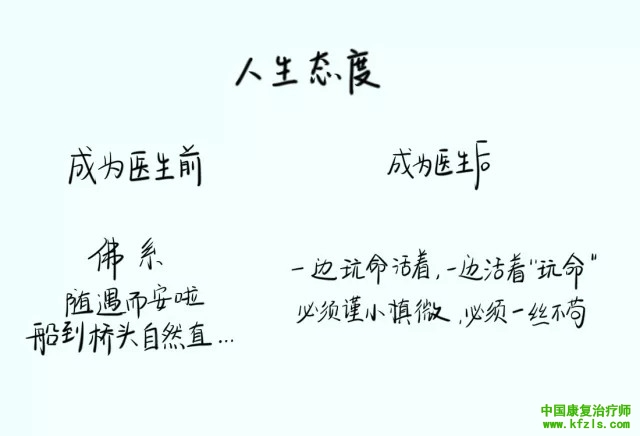 人生态度
成为医生前
成为医生后
佛系
随遇而安啦
船到桥头自然直...
一边玩命活着,一边活着"玩命"
必须谨小慎微,必须一丝不苟
中国康复治疗师
www.kfzls.com